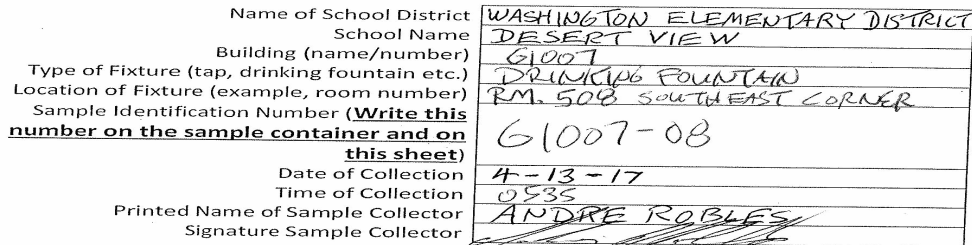 Name of School District WASHINGTON ELEMENTARY DISTRICT
School Name DESERT VIEW
Building (name/number) G1007
Type of Fixture (tap, drinking fountain etc.) DRINKING FOUNTAIN
Location of Fixture (example, room number) RM. 508 SOUTHEAST CORNER
Sample Identification Number (Write this
number on the sample container and on G1007-08
this sheet)
Date of Collection 4-13-17
Time of Collection 0535
Printed Name of Sample Collector ANDRE ROBLES
Signature Sample Collector